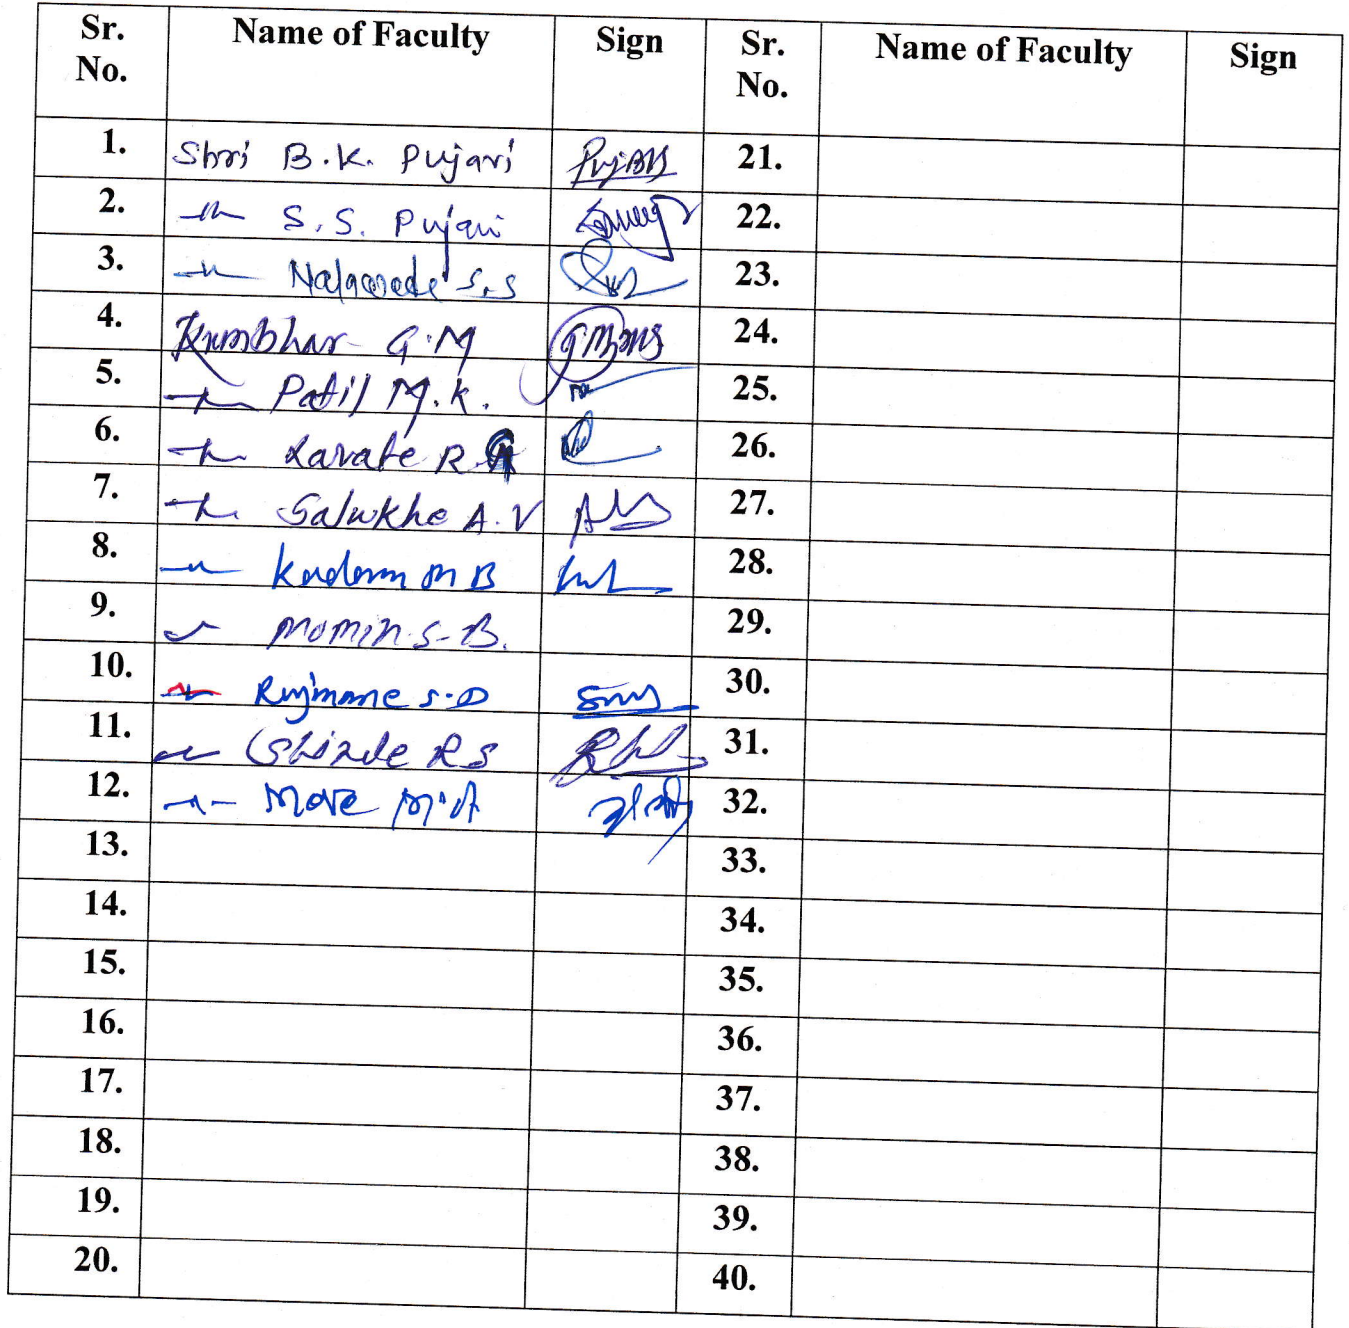 Sr. No. Name of Faculty Sign Sr. No. Name of Faculty Sign
1. Shri B.K. Pujari Pujari 21.
2. -"- S.S. Pujari 22.
3. -"- Nalawade S.S 23.
4. Kumbhar G.M 24.
5. -"- Patil M.K. 25.
6. -"- Lavate R. 26.
7. -"- Salukhe A.V 27.
8. -"- Kadam M B 28.
9. -"- Momin S.B. 29.
10. -"- Rajmane S.D 30.
11. -"- Shinde R S 31.
12. -"- More M.A 32.
13. 33.
14. 34.
15. 35.
16. 36.
17. 37.
18. 38.
19. 39.
20. 40.